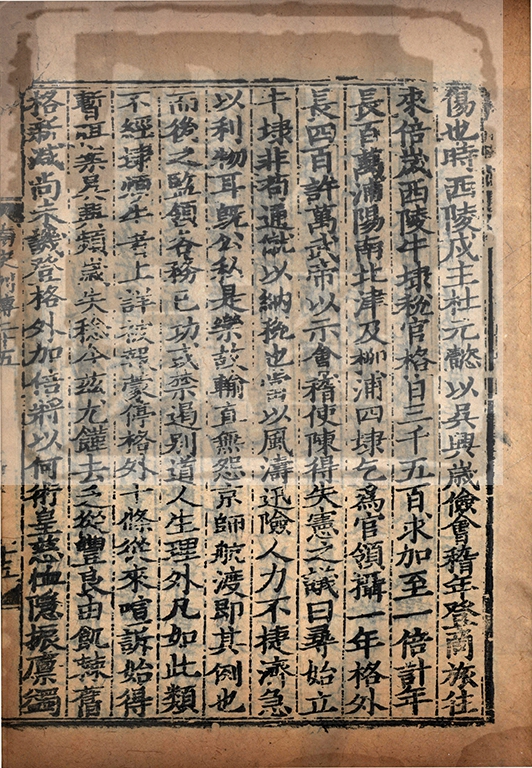 傷也時西陵戍主杜元懿以吳興歲儉會稽年登商旅往
來倍歲西陵牛埭稅官格日三千五百求加至一倍計年
長百萬浦陽南北津及柳浦四埭乞爲官領攝一年格外
長四百許萬武帝以示會稽使陳得失憲之議曰尋始立
牛埭非苟通僦以納稅也當以風濤迅險人力不捷濟急
以利物耳既公私是樂故輸直無怨京師航渡即其例也
而後之監領各務已功或禁遏別道人生理外凡如此類
不經埭煩牛者上詳被報蒙停格外十條從來喧訴始得
暫弭案吳興頻歲失稔今茲尤饉去乏從豐良由飢棘舊
格新減尚未議登格外加倍將以何術皇慈恤隱振廩蠲
南史列傳二十五